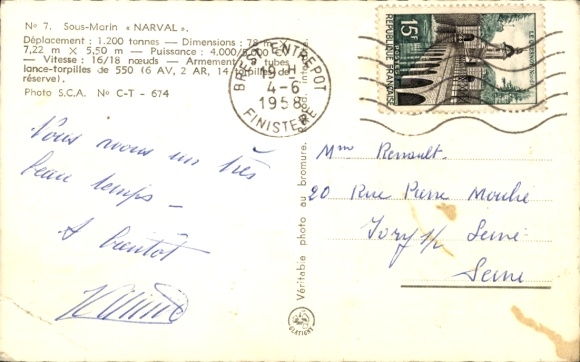 No 7. Sous-Marin « NARVAL ».
Déplacement : 1.200 tonnes — Dimensions : 78 m
7,22 m X 5,50 m — Puissance : 4.000/5.000
— Vitesse : 16/18 nœuds — Armement : tubes
lance-torpilles de 550 (6 AV, 2 AR, 14 torpilles de
réserve).
Photo S.C.A. No C-T - 674
BREST ENTREPOT
19 H
4-6
1958
FINISTERE
15F
REPUBLIQUE FRANÇAISE
POSTES
Vous avons un très
beau temps —
A bientôt
Véritable photo au bromure.
GLATIGNY
Mme Renault.
20 Rue Pierre Mouhé
Ivry s/ Seine
Seine